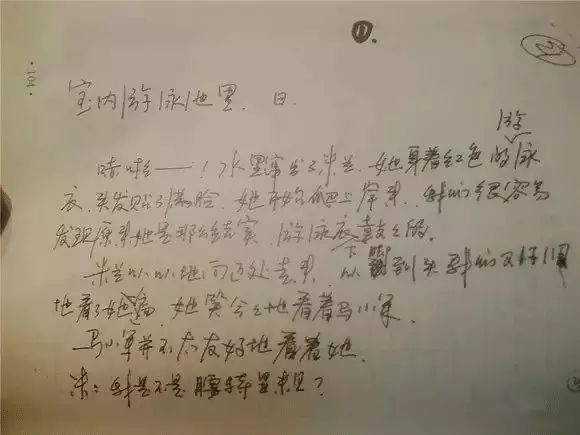 ①.
·104·
室内游泳池里. 日.
哗啦——！水里窜出了米兰. 她穿着红色的游泳
衣. 头发贴了满脸. 她开始爬上岸来. 我们很容易
发现原来她是那么结实. 游泳衣下鼓鼓的.
米兰从从地向这处走来. 从脚到头我们又仔细
地看了她遍. 她笑盈盈地看着马小军.
马小军并不太友好地看着她.
米：我是不是腰特显来见？